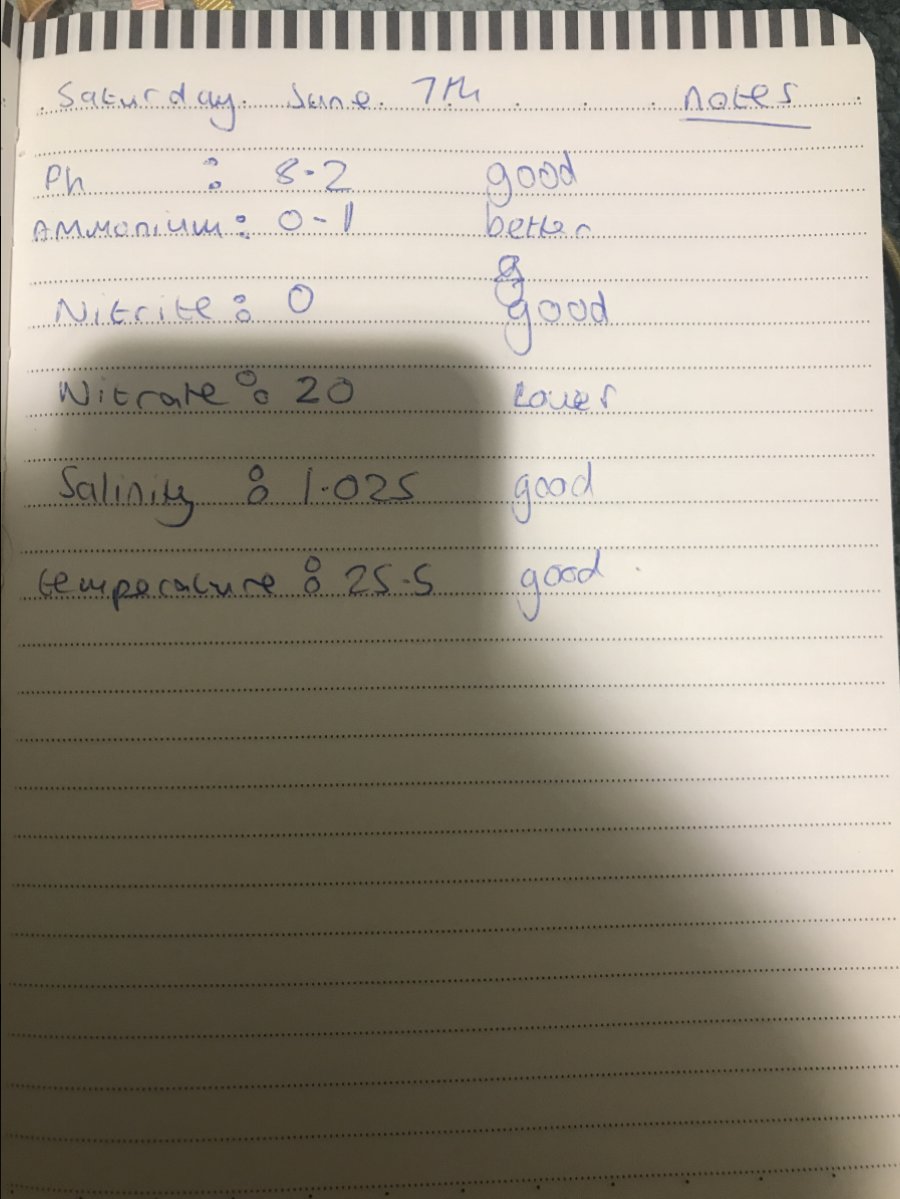 Saturday. June. 7th notes
Ph : 8.2 good
AMMonium: 0-1 better
g
Nitrite: 0 good
Nitrate: 20 Lower
Salinity : 1.025 good
temperature : 25.5 good.